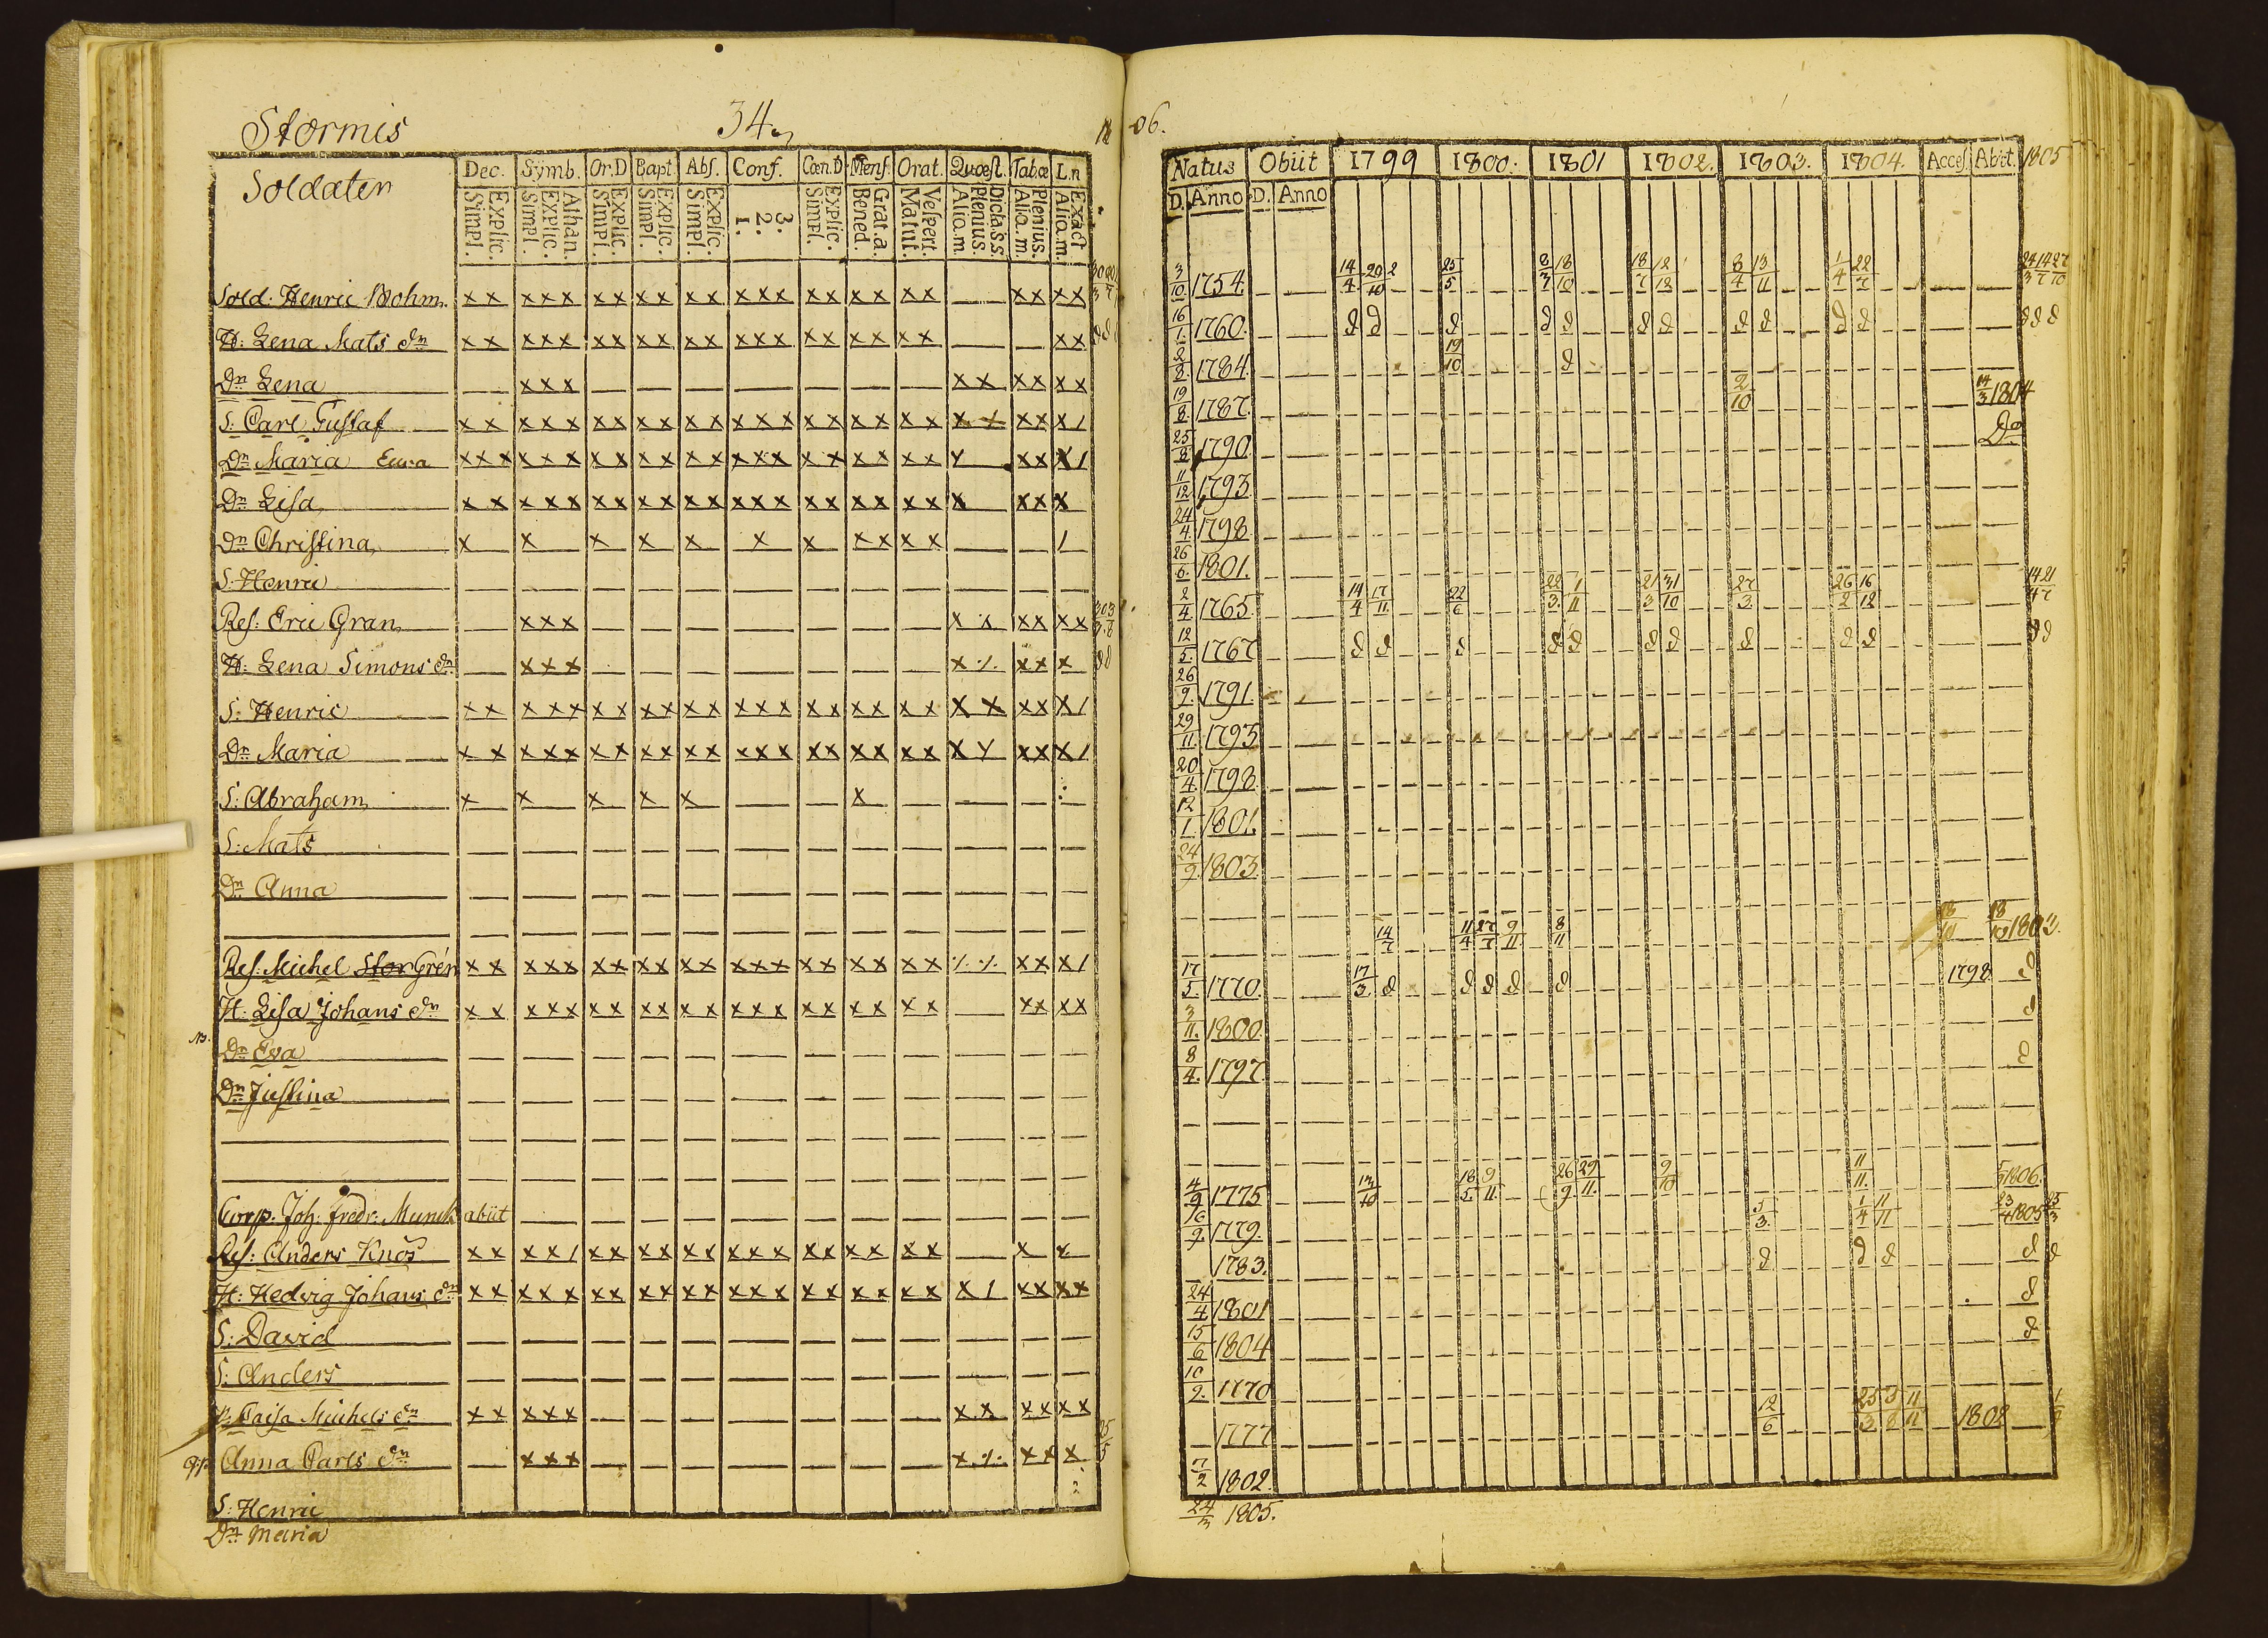 Stormis
34
Soldaten
Dec. Symb. Or.D Bapt. Abs. Conf. Cœn.D Mens. Orat. Quæst. Tabæ L.n
Explic. Simpl.
Athan. Explic. Simpl.
Explic. Simpl.
Explic. Simpl.
Explic. Simpl.
3. 2. 1.
Explic. Simpl.
Grat.a. Bened.
Vespert. Matut.
Dicta.s.s. Plenius. Alio.m.
Plenius. Alio.m.
Exact Alio.m.
Sold. Henric Bohm
H: Lena Mats dn
Dn Lena
S: Carl Gustaf
Dn Maria Eura
Dn Lisa
Dn Christina
S: Henric
Res: Eric Gran
H: Lena Simons dn
S: Henric
Dn Maria
S: Abraham
S: Mats
Dn Anna
Res: Michel Stor Grén
H: Lisa Johans dn
Dn Eva
Dn Justina
Corp. Joh: Fredr: Munck abiit
Res: Anders Knós
H: Hedvig Johans dn
S: David
S: Anders
Caisa Michels dn
Anna Carls dn
S: Henric
Dn Maria
06.
Natus Obiit 1799 1800. 1801 1802. 1803. 1804. Acces. Abiit. 1805
D. Anno D. Anno
3/10 1754. 14/4 25/5 8/3 18/10 18/7 8/4 13/11 1/4 22/7
16/1. 1760. d d d d d d d d d d d d d d
2/8. 1784. 19/10 d
19/8. 1787. 2/10 14/3 1804
25/8 1790. Do
11/12. 1793.
24/4. 1798.
26/6. 1801.
2/4 1765. 14/4 17/11. 22/6 22/3. 1/11 21/3 31/10 27/3. 26/2 16/12
12/5. 1767 d d d d d d d d d d d d
26/9. 1791.
29/11. 1795
20/4. 1798.
12/1. 1801.
24/9. 1803.
14/7 11/4 27/7 9/11 8/11
17/5. 1770. 17/3. d d d d d 1798. d
3/11. 1800. d
8/4. 1797. d
4/9 1775 13/10 18/5. 9/11. 26/9 29/11. 9/10 11/11. 1806.
16/9. 1779. 5/3. 1/4 11/11 23/4 1805
1783. d d d d d
24/4 1801 d
15/6 1804 d
10/2. 1770
1777 12/6 1802
7/2 1802.
24/3 1805.